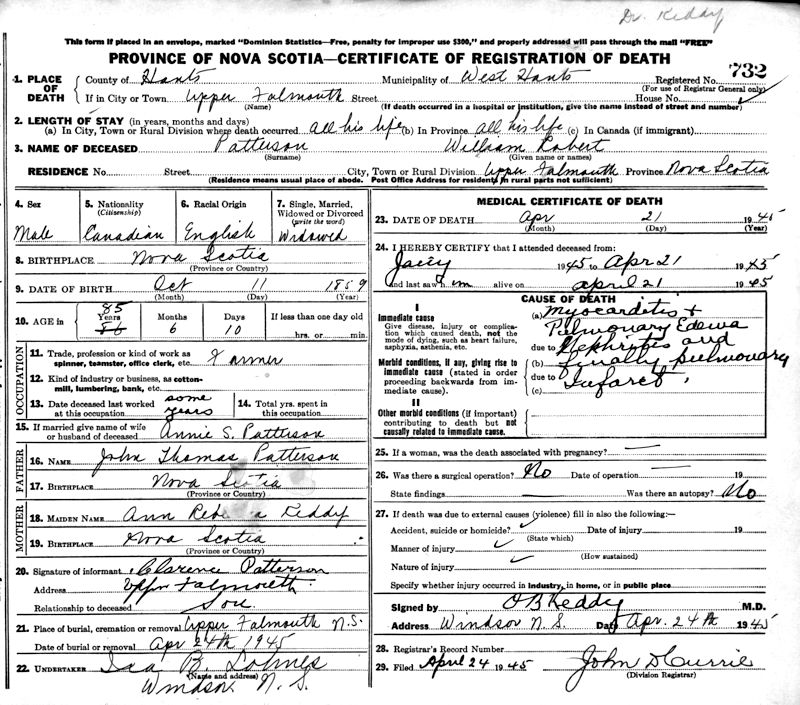 Dr. Keddy
This form if placed in an envelope, marked "Dominion Statistics—Free, penalty for improper use $300," and properly addressed will pass through the mail "FREE"
PROVINCE OF NOVA SCOTIA—CERTIFICATE OF REGISTRATION OF DEATH
732
1. PLACE OF DEATH
County of Hants Municipality of West Hants Registered No.
(For use of Registrar General only)
If in City or Town Upper Falmouth Street House No.
(Name) (If death occurred in a hospital or institution, give the name instead of street and number)
2. LENGTH OF STAY (in years, months and days)
(a) In City, Town or Rural Division where death occurred all his life (b) In Province all his life (c) In Canada (if immigrant)
3. NAME OF DECEASED Patterson William Robert
(Surname) (Given name or names)
RESIDENCE No. Street City, Town or Rural Division Upper Falmouth Province Nova Scotia
(Residence means usual place of abode. Post Office Address for residents in rural parts not sufficient)
4. Sex
Male
5. Nationality (Citizenship)
Canadian
6. Racial Origin
English
7. Single, Married, Widowed or Divorced (write the word)
Widowed
8. BIRTHPLACE Nova Scotia
(Province or Country)
9. DATE OF BIRTH Oct 11 1859
(Month) (Day) (Year)
10. AGE in
85
Years Months Days If less than one day old
86 6 10 hrs. or min.
OCCUPATION
11. Trade, profession or kind of work as spinner, teamster, office clerk, etc. Farmer
12. Kind of industry or business, as cotton-mill, lumbering, bank, etc.
13. Date deceased last worked at this occupation some years
14. Total yrs. spent in this occupation
15. If married give name of wife or husband of deceased Annie S. Patterson
FATHER
16. NAME John Thomas Patterson
17. BIRTHPLACE Nova Scotia
(Province or Country)
MOTHER
18. MAIDEN NAME Ann Keddy
19. BIRTHPLACE Nova Scotia
(Province or Country)
20. Signature of informant Clarence Patterson
Address Upper Falmouth
Relationship to deceased Son
21. Place of burial, cremation or removal Upper Falmouth N.S.
Date of burial or removal Apr 24th 1945
22. UNDERTAKER B.
(Name and address)
Windsor N.S.
MEDICAL CERTIFICATE OF DEATH
23. DATE OF DEATH Apr 21 1945
(Month) (Day) (Year)
24. I HEREBY CERTIFY that I attended deceased from:
1945 to Apr 21 1945
and last saw him alive on april 21 1945
CAUSE OF DEATH
I
Immediate cause
Give disease, injury or complication which caused death, not the mode of dying, such as heart failure, asphyxia, asthenia, etc.
Morbid conditions, if any, giving rise to immediate cause (stated in order proceeding backwards from immediate cause).
II
Other morbid conditions (if important) contributing to death but not causally related to immediate cause.
(a) Myocarditis &
Pulmonary Edema
due to Nephritis and
(b) finally pulmonary
due to Infarct
(c)
25. If a woman, was the death associated with pregnancy?
26. Was there a surgical operation? No Date of operation 19
State findings Was there an autopsy? No
27. If death was due to external causes (violence) fill in also the following:—
Accident, suicide or homicide? Date of injury 19
(State which)
Manner of injury
(How sustained)
Nature of injury
Specify whether injury occurred in industry, in home, or in public place
Signed by O B Keddy M.D.
Address Windsor N.S. Date Apr. 24th 1945
28. Registrar's Record Number
29. Filed April 24 1945 John D Currie
(Division Registrar)